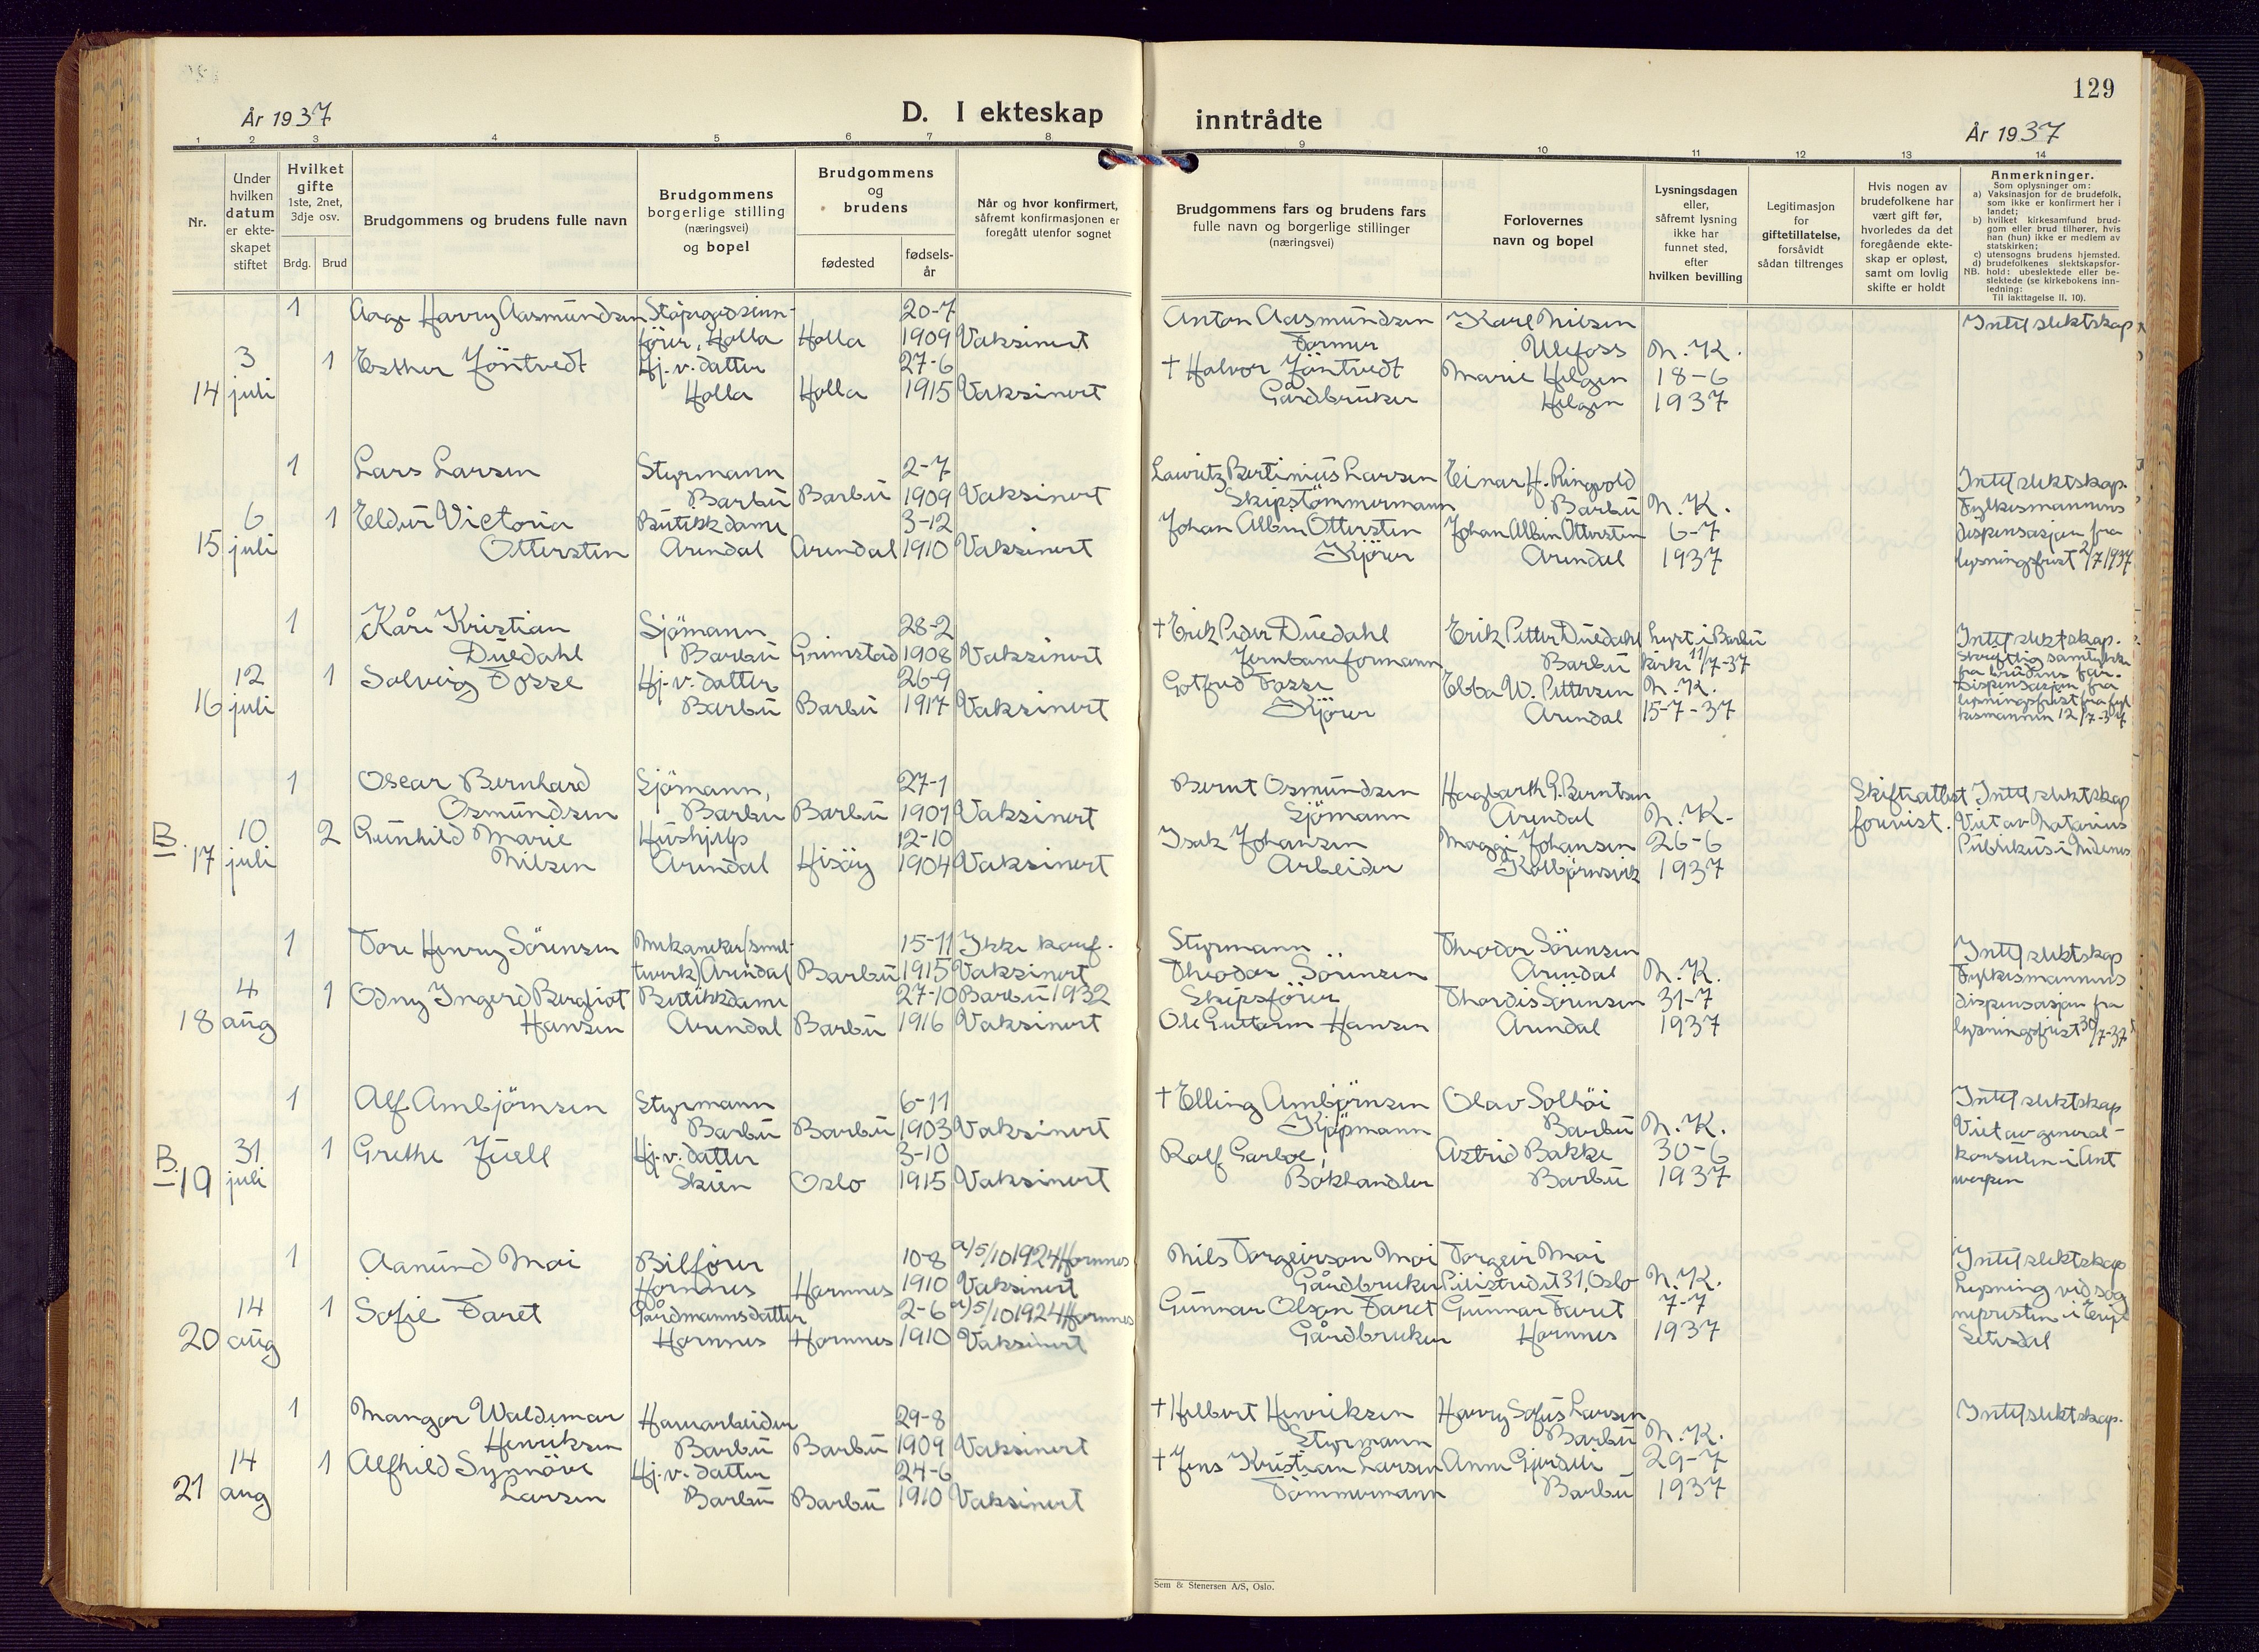 129
År 1937
D. I ekteskap
inntrådte
År 1937
1 2 3 4 5 6 7 8
9 10 11 12 13 14
Nr.
Under
hvilken
datum
er ekte-
skapet
stiftet
Hvilket
gifte
1ste, 2net,
3dje osv.
Brdg. Brud
Brudgommens og brudens fulle navn
Brudgommens
borgerlige stilling
(næringsvei)
og bopel
Brudgommens
og
brudens
fødested
fødsels-
år
Når og hvor konfirmert,
såfremt konfirmasjonen er
foregått utenfor sognet
Brudgommens fars og brudens fars
fulle navn og borgerlige stillinger
(næringsvei)
Forlovernes
navn og bopel
Lysningsdagen
eller,
såfremt lysning
ikke har
funnet sted,
efter
hvilken bevilling
Legitimasjon
for
giftetillatelse,
forsåvidt
sådan tiltrenges
Hvis nogen av
brudefolkene har
vært gift før,
hvorledes da det
foregående ekte-
skap er opløst,
samt om lovlig
skifte er holdt
Anmerkninger.
Som oplysninger om:
a) Vaksinasjon for de brudefolk,
som ikke er konfirmert her i
landet;
b) hvilket kirkesamfund brud-
gom eller brud tilhører, hvis
han (hun) ikke er medlem av
statskirken;
c) utensogns brudens hjemsted.
d) brudefolkenes slektskapsfor-
NB. hold: ubeslektede eller be-
slektede (se kirkebokens inn-
ledning:
Til iakttagelse II. 10).
1 Aage Harry Aasmundsen 20-7 Anton Aasmundsen Karl Nilsen Intet slektskap
fører, Holla Holla 1909 Vaksinert Former Ulefoss N.K.
3 1 Esther Jöntvedt Hj.v. datter 27-6 † Halvor Jöntvedt Marie Helgen 18-6
14 juli Holla Holla 1915 Vaksinert Gårdbruker Helgen 1937
1 Lars Larsen Styrmann 2-7 Lauritz Bertinius Larsen Einar H. Ringvold Intet slektskap.
Barbu Barbu 1909 Vaksinert Skipstömmermann Barbu N.K. Fylkesmannens
6 1 Eldur Victoria Butikkdame 3-12 Johan Albin Ottersten Johan Albin Ottersten 6-7 dispensasjon fra
15 juli Ottersten Arendal Arendal 1910 Vaksinert Kjörer Arendal 1937 lysningsfrist 2/7 1937
1 Kåre Kristian Sjömann 28-2 † Erik Peder Duedahl Erik Petter Duedahl Lyst i Barbu Intet slektskap.
Duedahl Barbu Grimstad 1908 Vaksinert Jernbaneformann Barbu kirke 11/7-37 Skriftlig samtykke
fra brudens far.
12 1 Solveig Fosse Hj.v. datter 26-9 Gotfred Fosse Ebba W. Pettersen N.K. Dispensasjon fra
lysningsfrist fra fyl
16 juli Barbu Barbu 1917 Vaksinert Kjörer Arendal 15-7-37 kesmannen 12/7-37
1 Oscar Bernhard Sjömann, 27-1 Bernt Osmundsen Hagbarth G. Berntsen Skifteattest Intet slektskap
Osmundsen Barbu Barbu 1901 Vaksinert Sjömann Arendal N.K. forevist. Viet av Notarius
B. 10 2 Gunhild Marie Hushjelp 12-10 Isak Johansen Maggi Johansen 26-6 Publikus i Nedenes
17 juli Nilsen Arendal Hisöy 1904 Vaksinert Arbeider Kolbjörnsvik 1937
1 Tore Henry Sörensen Mekaniker (smel- 15-11 Ikke konf. Styrmann Theodor Sörensen Intet slektskap
tverk) Arendal Barbu 1915 Vaksinert Theodor Sörensen Arendal N.K. Fylkesmannens
4 1 Odny Ingerd Bergliot Butikkdame 27-10 Barbu 1932 Skipsförer Thordis Sörensen 31-7 dispensasjon fra
18 aug Hansen Arendal Barbu 1916 Vaksinert Ole Guttorm Hansen Arendal 1937 lysningsfrist 30/7-37
1 Alf Ambjörnsen Styrmann 6-11 † Elling Ambjörnsen Olav Solhöi Intet slektskap
Barbu Barbu 1903 Vaksinert Kjöpmann Barbu N.K. Viet av general-
B. 31 1 Grethe Juell Hj.v. datter 3-10 Ralf Garboe, Astrid Bakke 30-6 konsulen i Ant
19 juli Skien Oslo 1915 Vaksinert Bokhandler Barbu 1937 werpen
1 Aanund Moi Bilförer 10-8 a/5/10 1924 Hornnes Nils Torgeirson Moi Torgeir Moi Intet slektskap
Hornnes Hornnes 1910 Vaksinert Gårdbruker Pilestredet 31, Oslo N.K. Lysning ved sog
14 1 Sofie Faret Gårdmannsdatter 2-6 a/5/10 1924 Hornnes Gunnar Olson Faret Gunnar Faret 7-7 nepresten i Evje
20 aug Hornnes Hornnes 1910 Vaksinert Gårdbruker Hornnes 1937 Setesdal
1 Mangor Waldemar Havnarbeider 29-8 † Helbert Henriksen Harry Sofus Larsen Intet slektskap.
Henriksen Barbu Barbu 1909 Vaksinert Styrmann Barbu N.K.
14 1 Alfhild Synnöve Hj.v. datter 24-6 † Jens Kristian Larsen Anne Gjerdli 29-7
21 aug Larsen Barbu Barbu 1910 Vaksinert Tömmermann Barbu 1937
Sem & Stenersen A/S, Oslo.